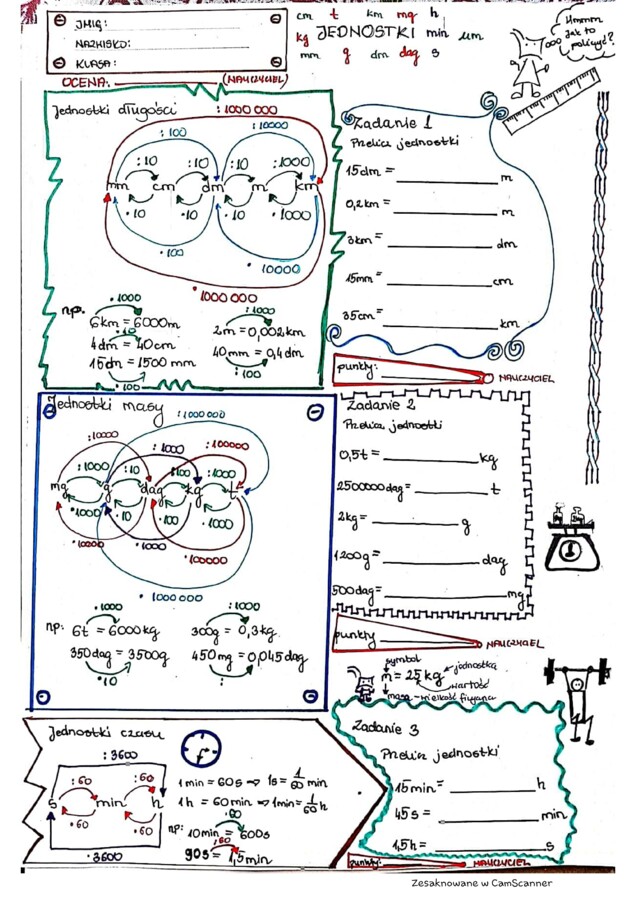 cm t km mg h
kg JEDNOSTKI min µm
mm g dm dag s
IMIĘ:
NAZWISKO:
KLASA:
OCENA: (NAUCZYCIEL)
Hmmm
Jak to
policzyć?
Jednostki długości
:1000 000
:100 :10000
:10 :10 :10 :1000
mm cm dm m km
·10 ·10 ·10 ·1000
·100
·10000
·1000 000
np.
·1000
6km = 6000m
·10
4dm = 40cm
15dm = 1500 mm
·100
:1000
2m = 0,002km
40mm = 0,4dm
:100
Zadanie 1
Przelicz jednostki
15dm = m
0,2km = m
3km = dm
15mm = cm
35cm = km
punkty: NAUCZYCIEL
Jednostki masy
:1000 000
:10000 :1000 :100000
:1000 :10 :100 :1000
mg g dag kg t
·1000 ·10 ·100 ·1000
·10000 ·1000 ·100000
·1000 000
np:
·1000
6t = 6000kg
350dag = 3500g
·10
:1000
300g = 0,3kg
450mg = 0,045dag
:
Zadanie 2
Przelicz jednostki
0,5t = kg
2500000dag = t
2kg = g
1200g = dag
500dag = mg
punkty NAUCZYCIEL
symbol
m = 25 kg jednostka
wartość
masa - wielkość fizyczna
Jednostki czasu
:3600
:60 :60
s min h
·60 ·60
·3600
1min = 60s => 1s = 1/60 min
1h = 60min => 1min = 1/60 h
np:
·60
10min = 600s
:60
90s = 1,5min
Zadanie 3
Przelicz jednostki
15min = h
45s = min
1,5h = s
punkty: NAUCZYCIEL
Zeskanowane w CamScanner